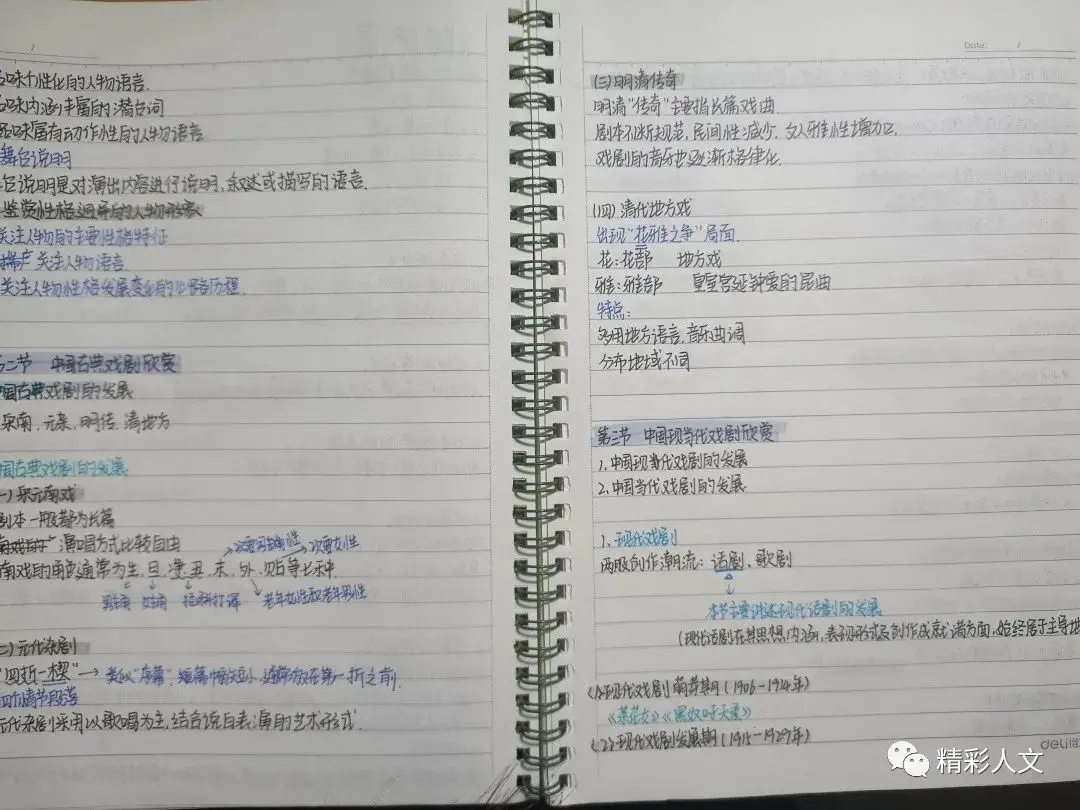 味个性化的人物语言.
味内涵丰富的潜台词
品味富有动作性的人物语言
舞台说明
台说明是对演出内容进行说明,叙述或描写的语言.
鉴赏性格迥异的人物形象
关注人物的主要性格特征
关注人物语言
关注人物性格发展变化的心路历程.
二节 中国古典戏剧欣赏
中国古典戏剧的发展
宋南、元杂、明传、清地方
国古典戏剧的发展
一)宋元南戏
剧本一般都为长篇
演唱方式比较自由
次要男性 次要女性
南戏的角色通常为生、旦、净、丑、末、外、贴等七种.
男主角 女主角 插科打诨 老年女性和老年男性
二)元代杂剧
"四折一楔"→类似"序幕",短篇幅短小,通常放在第一折之前.
四个情节段落
元代杂剧采用以歌唱为主,结合说白表演的艺术形式.
Date. /
(三)明清传奇
明清"传奇"主要指长篇戏曲
剧本不断规范,民间性减少,文人雅性增加.
戏剧的音乐也逐渐格律化.
(四)清代地方戏
出现"花雅之争"局面.
花:花部 地方戏
雅:雅部 皇室宫廷钟爱的昆曲
特点:
多用地方语言,音乐曲调
分布地域不同
第三节 中国现当代戏剧欣赏
1.中国现当代戏剧的发展
2.中国当代戏剧的发展
1.现代戏剧
两股创作潮流:话剧、歌剧
本节主要讲述现代话剧的发展
(现代话剧在其思想内涵,表现形式及创作成就诸方面,始终居于主导地
(1)现代戏剧萌芽期(1906-1914年)
《茶花女》《黑奴吁天录》
(2)现代戏剧发展期(1915-1929年)
deli
精彩人文